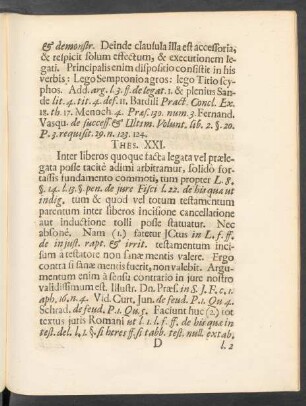 & demonstr. Deinde clausula illa est accessoria,
& respicit solum effectum, & executionem le-
gati. Principalis enim dispositio consistit in his
verbis: Lego Sempronio agros: lego Titio scy-
phos. Add. arg. l. 3. ff. de legat. 1. & plenius San-
de lit. 4. tit. 4. def. 11. Bardili Pract. Concl. Ex.
18. th. 17. Menoch. 4. Præs. 130. num. 3. Fernand.
Vasqu. de success. & Ultim. Volunt. lib. 2. §. 20.
P. 3. requisit. 29. n. 123. 124.
THES. XXI.
Inter liberos quoque facta legata vel præle-
gata posse tacitè adimi arbitramur, solido for-
tassis fundamento commoti, tum propter L. 8.
§. 14. l. 13. §. pen. de jure Fisci l. 22. de his qua ut
indig. tum & quod vel totum testamentum
parentum inter liberos incisione cancellatione
aut inductione tolli posse statuatur. Nec
absonè. Nam (1.) fatetur JCtus in L. f. ff.
de injust. rapt. & irrit. testamentum inci-
sum a testatore non sanæ mentis valere. Ergo
contra si sanæ mentis fuerit, non valebit. Argu-
mentum enim à sensu contrario in jure nostro
validissimum est. Illustr. Dn. Præs. in S. J. F. c. 1.
aph. 16. n. 4. Vid. Curt. Jun. de feud. P. 1. Qu 4.
Schrad. de feud. P. 1. Qu. 5. Faciunt huc (2.) tot
textus juris Romani ut l. 1. l. f. ff. de his quæ in
test. del. l. 1. §. si heres ff. si tabb. test. null. extab.
D l. 2